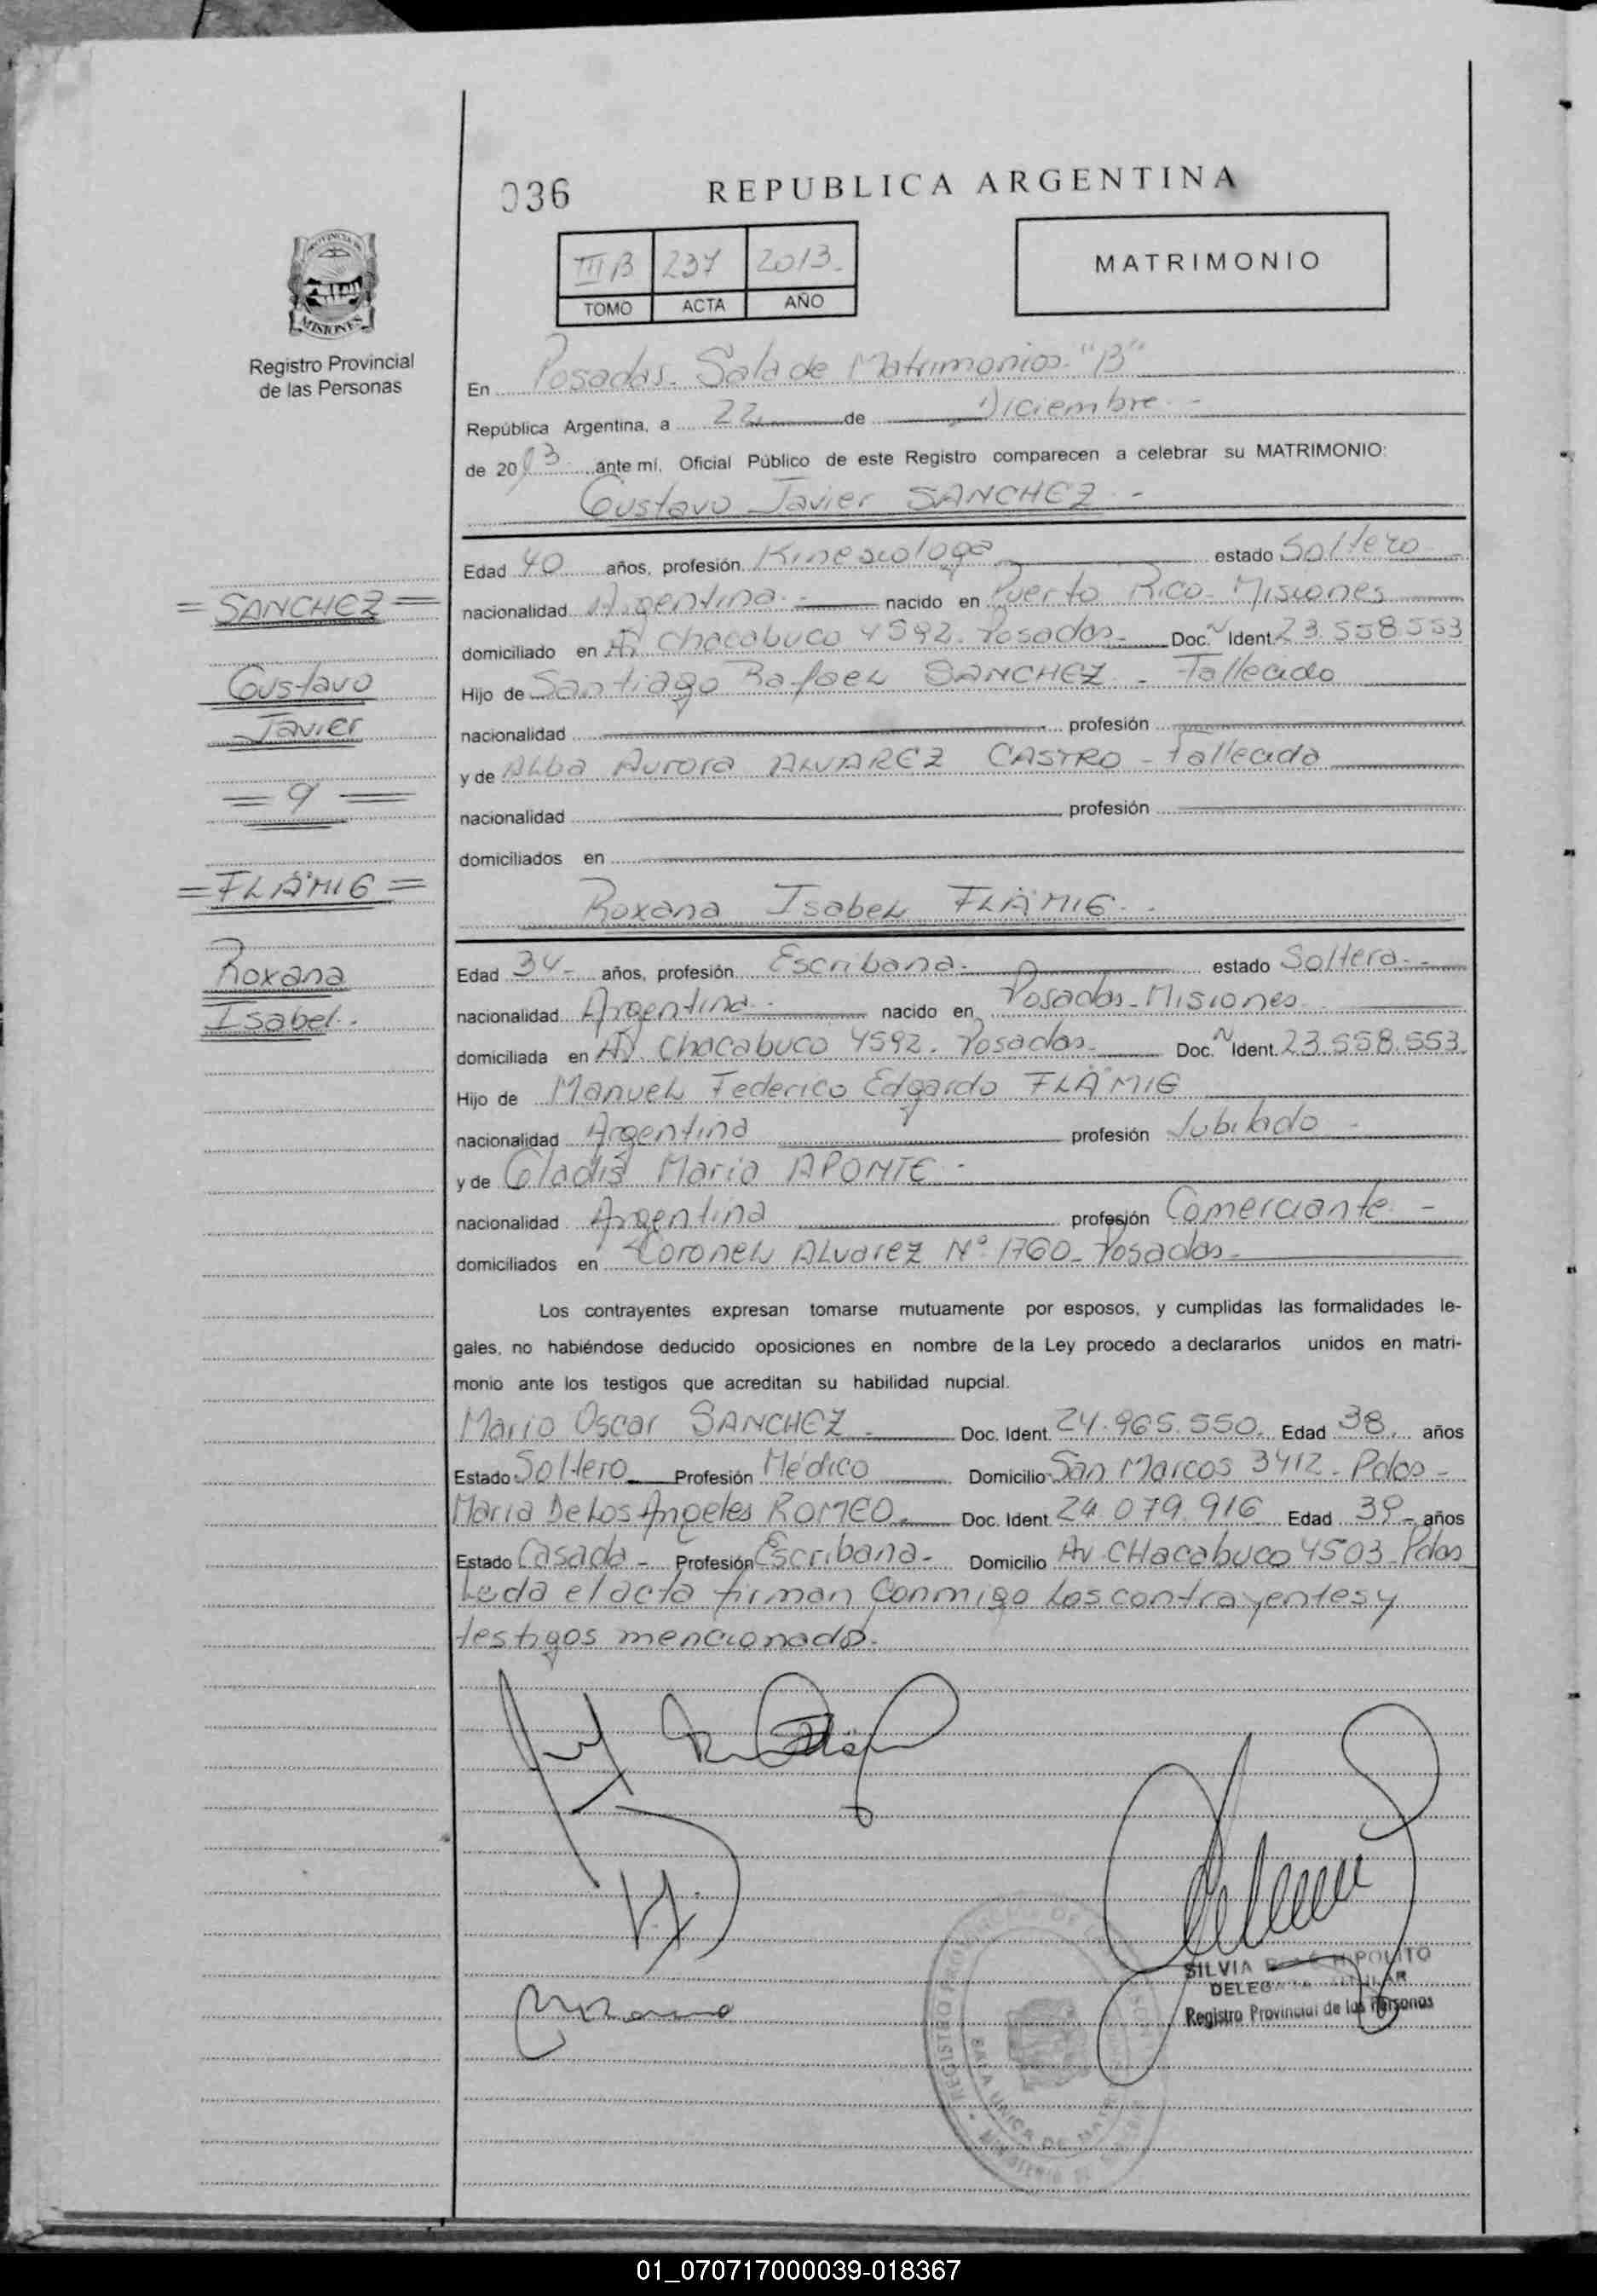 036
REPUBLICA ARGENTINA
III B 237 2013
TOMO ACTA AÑO
MATRIMONIO
PROVINCIA DE
MISIONES
Registro Provincial
de las Personas
En Posadas. Sala de Matrimonios "B"
República Argentina, a 22 de Diciembre
de 2013 ante mí, Oficial Público de este Registro comparecen a celebrar su MATRIMONIO:
Gustavo Javier SANCHEZ
Edad 40 años, profesión Kinesiologa estado Soltero
nacionalidad Argentina nacido en Puerto Rico - Misiones
domiciliado en Av Chacabuco 4592. Posadas Doc. N Ident. 23.558.553
Hijo de Santiago Rafael SANCHEZ - Fallecido
nacionalidad profesión
y de Alba Aurora ALVAREZ CASTRO - Fallecida
nacionalidad profesión
domiciliados en
Roxana Isabel FLÄMIG
Edad 34 años, profesión Escribana estado Soltera
nacionalidad Argentina nacido en Posadas - Misiones
domiciliada en AV. Chacabuco 4592. Posadas Doc. N Ident. 23.558.553
Hijo de Manuel Federico Edgardo FLÄMIG
nacionalidad Argentina profesión Jubilado
y de Gladis Maria APONTE
nacionalidad Argentina profesión Comerciante
domiciliados en Coronel Alvarez Nº 1760 - Posadas
Los contrayentes expresan tomarse mutuamente por esposos, y cumplidas las formalidades le-
gales, no habiéndose deducido oposiciones en nombre de la Ley procedo a declararlos unidos en matri-
monio ante los testigos que acreditan su habilidad nupcial.
Mario Oscar SANCHEZ Doc. Ident. 24.965.550. Edad 38 años
Estado Soltero Profesión Médico Domicilio San Marcos 3412 - Pdas
Maria De Los Angeles ROMEO Doc. Ident. 24.079.916 Edad 39 años
Estado Casada Profesión Escribana Domicilio Av. CHacabuco 4503 - Pdas
Leda el acta firman Conmigo Los contrayentes y
testigos mencionado.
= SANCHEZ =
Gustavo
Javier
= y =
= FLÄMIG =
Roxana
Isabel
SILVIA HIPOLITO
DELEGADA TITULAR
Registro Provincial de las Personas
01_070717000039-018367